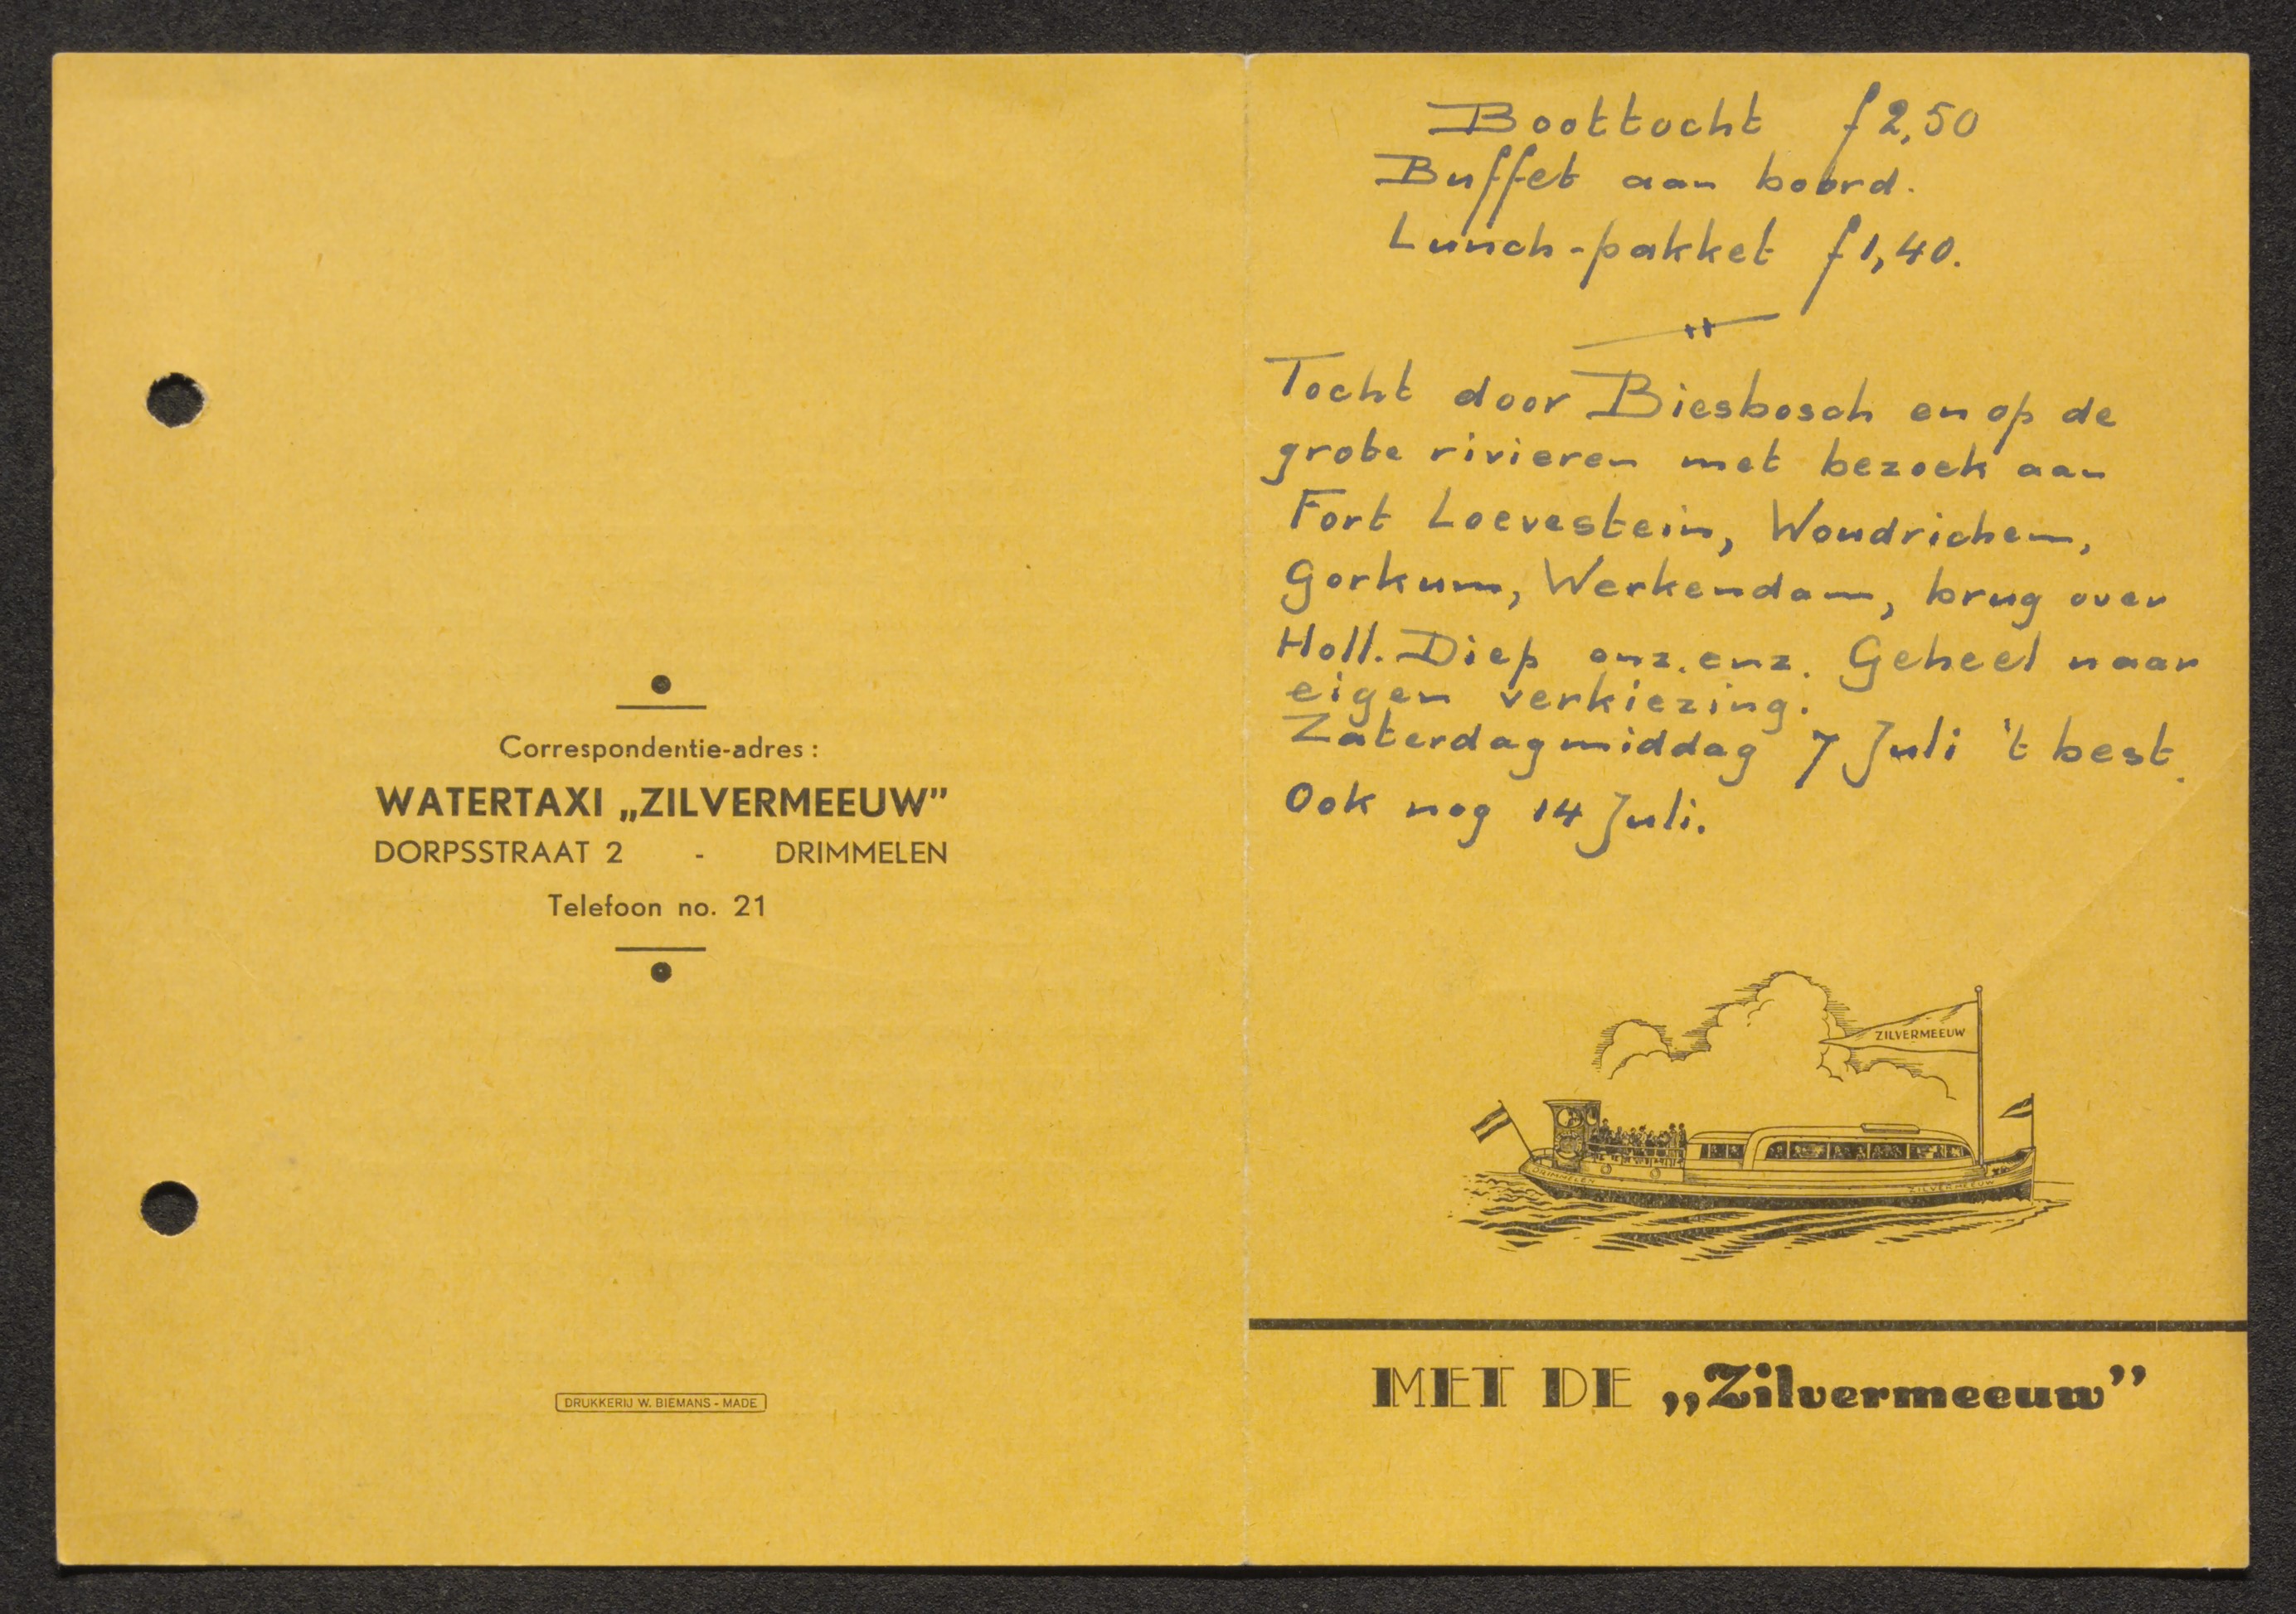 Correspondentie-adres :
WATERTAXI „ZILVERMEEUW”
DORPSSTRAAT 2 - DRIMMELEN
Telefoon no. 21
DRUKKERIJ W. BIEMANS - MADE
Boottocht f 2,50
Buffet aan boord.
Lunch-pakket f 1,40.
Tocht door Biesbosch en op de
grote rivieren met bezoek aan
Fort Loevestein, Woudrichem,
Gorkum, Werkendam, brug over
Holl. Diep enz. enz. Geheel naar
eigen verkiezing.
Zaterdagmiddag 7 Juli 't best.
Ook nog 14 Juli.
ZILVERMEEUW
DRIMMELEN ZILVERMEEUW
MET DE „Zilvermeeuw”